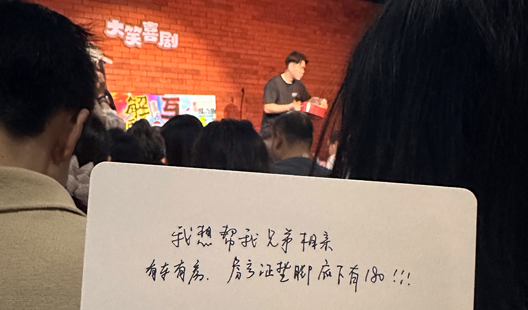 大笑喜剧
解
互
我想帮我兄弟相亲
有车有房、房产证垫脚底下有180!!!